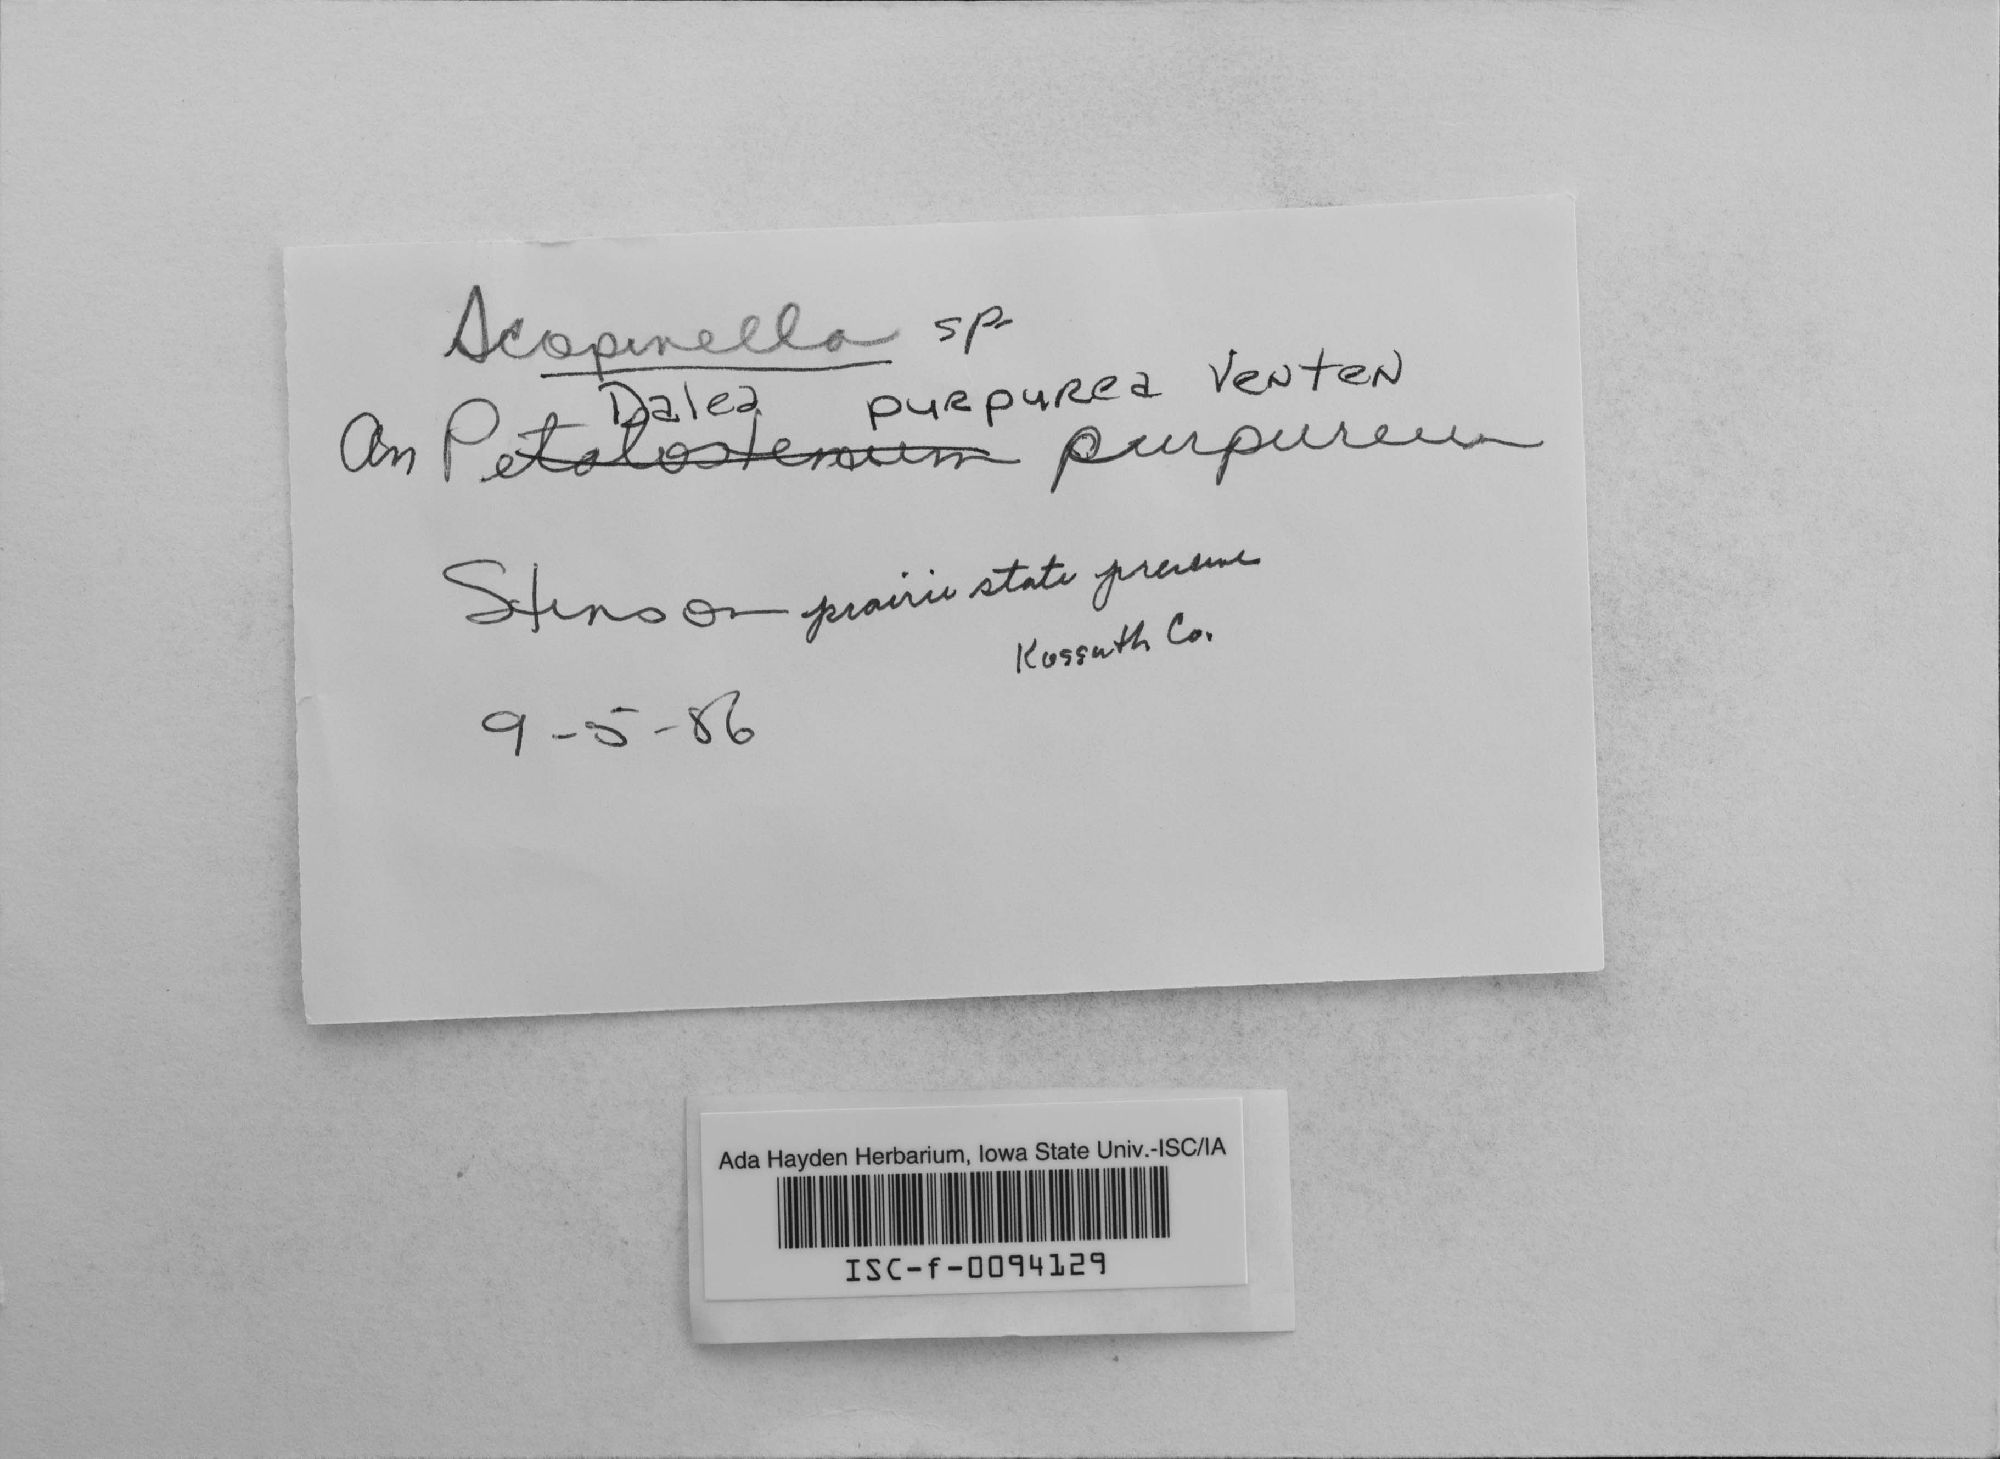 Scopinella sp.
Dalea purpurea Venten
On Petalostemum purpureum
Stinson prairie state preserve
Kossuth Co.
9-5-86
Ada Hayden Herbarium, Iowa State Univ.-ISC/IA
ISC-f-0094129